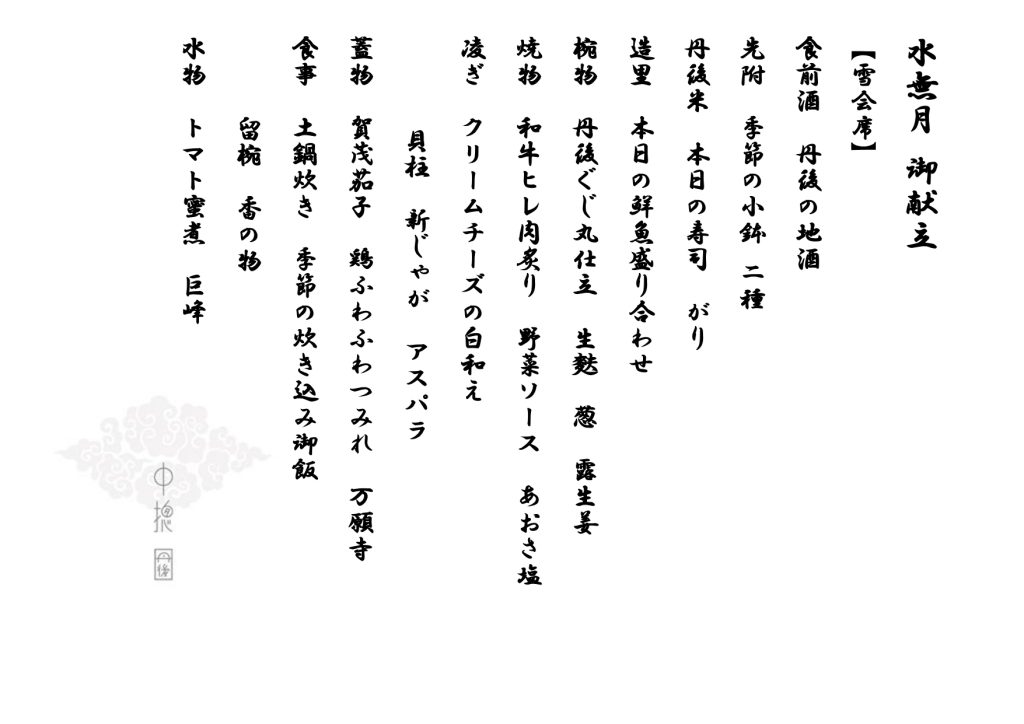 水無月　御献立
【雪会席】
食前酒　丹後の地酒
先附　季節の小鉢　二種
丹後米　本日の寿司　がり
造里　本日の鮮魚盛り合わせ
椀物　丹後ぐじ丸仕立　生麩　葱　露生姜
焼物　和牛ヒレ肉炙り　野菜ソース　あおさ塩
凌ぎ　クリームチーズの白和え
貝柱　新じゃが　アスパラ
蓋物　賀茂茄子　鶏ふわふわつみれ　万願寺
食事　土鍋炊き　季節の炊き込み御飯
留椀　香の物
水物　トマト蜜煮　巨峰
中
丹後